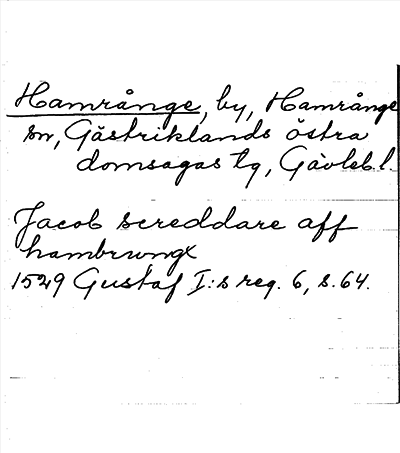 Hamrånge, by, Hamrånge
sn, Gästriklands östra
domsagas tg, Gävlebl.
Jacob screddare aff
hambrungx
1529 Gustaf I:s reg. 6, s. 64.